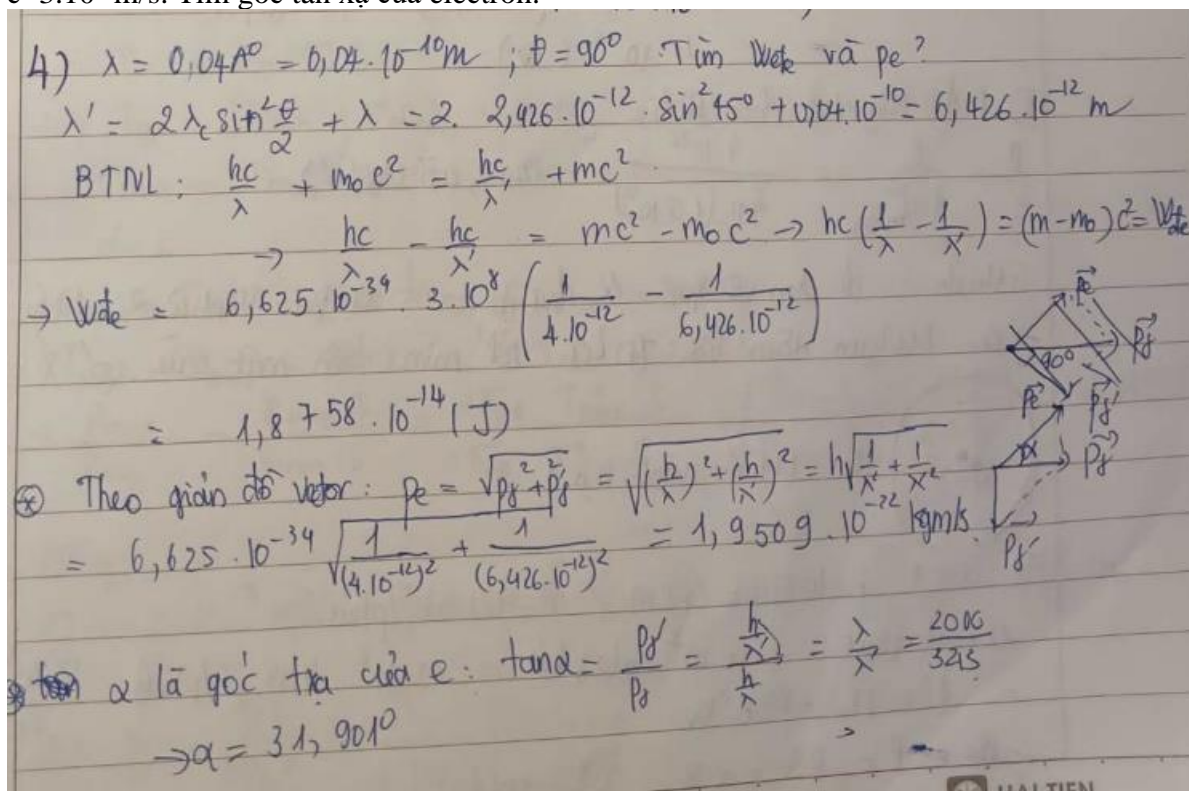 c=3.10⁸ m/s. Tìm góc tán xạ của electron.
4) λ = 0,04A⁰ = 0,04.10⁻¹⁰m ; θ = 90⁰ Tìm Wđe và pe ?
λ' = 2λc sin² θ/2 + λ = 2. 2,426.10⁻¹² . sin² 45⁰ + 0,04.10⁻¹⁰ = 6,426.10⁻¹² m
BTNL : hc/λ + m₀c² = hc/λ' + mc²
→ hc/λ - hc/λ' = mc² - m₀c² → hc(1/λ - 1/λ') = (m-m₀)c² = Wđe
→ Wđe = 6,625.10⁻³⁴ . 3.10⁸ (1/4.10⁻¹² - 1/6,426.10⁻¹²)
= 1,8758.10⁻¹⁴ (J)
pe
90⁰
pγ
pγ'
⊛ Theo giản đồ vector : pe = √(pγ² + pγ'²) = √((h/λ)² + (h/λ')²) = h√(1/λ² + 1/λ'²)
= 6,625.10⁻³⁴ √(1/(4.10⁻¹²)² + 1/(6,426.10⁻¹²)²) = 1,9509.10⁻²² kgm/s
pe
α
pγ
pγ'
α là góc txạ của e : tanα = pγ'/pγ = (h/λ')/(h/λ) = λ/λ' = 2000/3213
→ α = 31,901⁰
HAI TIEN